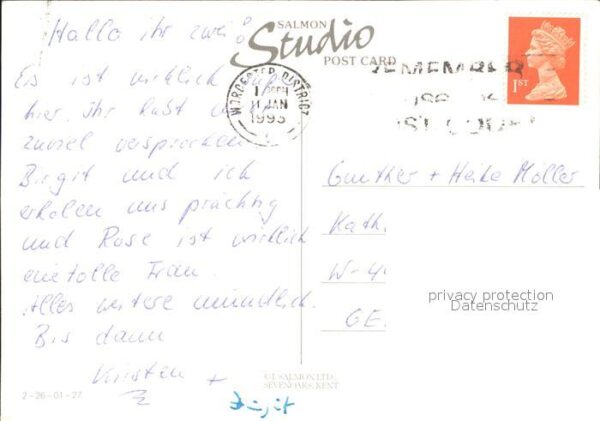 Hallo ihr zwei!
SALMON
Studio
POST CARD
Es ist wirklich
hier. Ihr habt
zuviel versprochen
Birgit und ich
erholen uns prächtig
und Rose ist wirklich
eine tolle Frau.
Alles weitere mündlich.
Bis dann
Kirsten +
Birgit
2-26-01-27
WORCESTER DISTRICT
11 JAN
1993
REMEMBER
1ST
Gunther + Heike Möller
Kath.
W-4
GE
privacy protection
Datenschutz
© J. SALMON LTD.,
SEVENOAKS, KENT